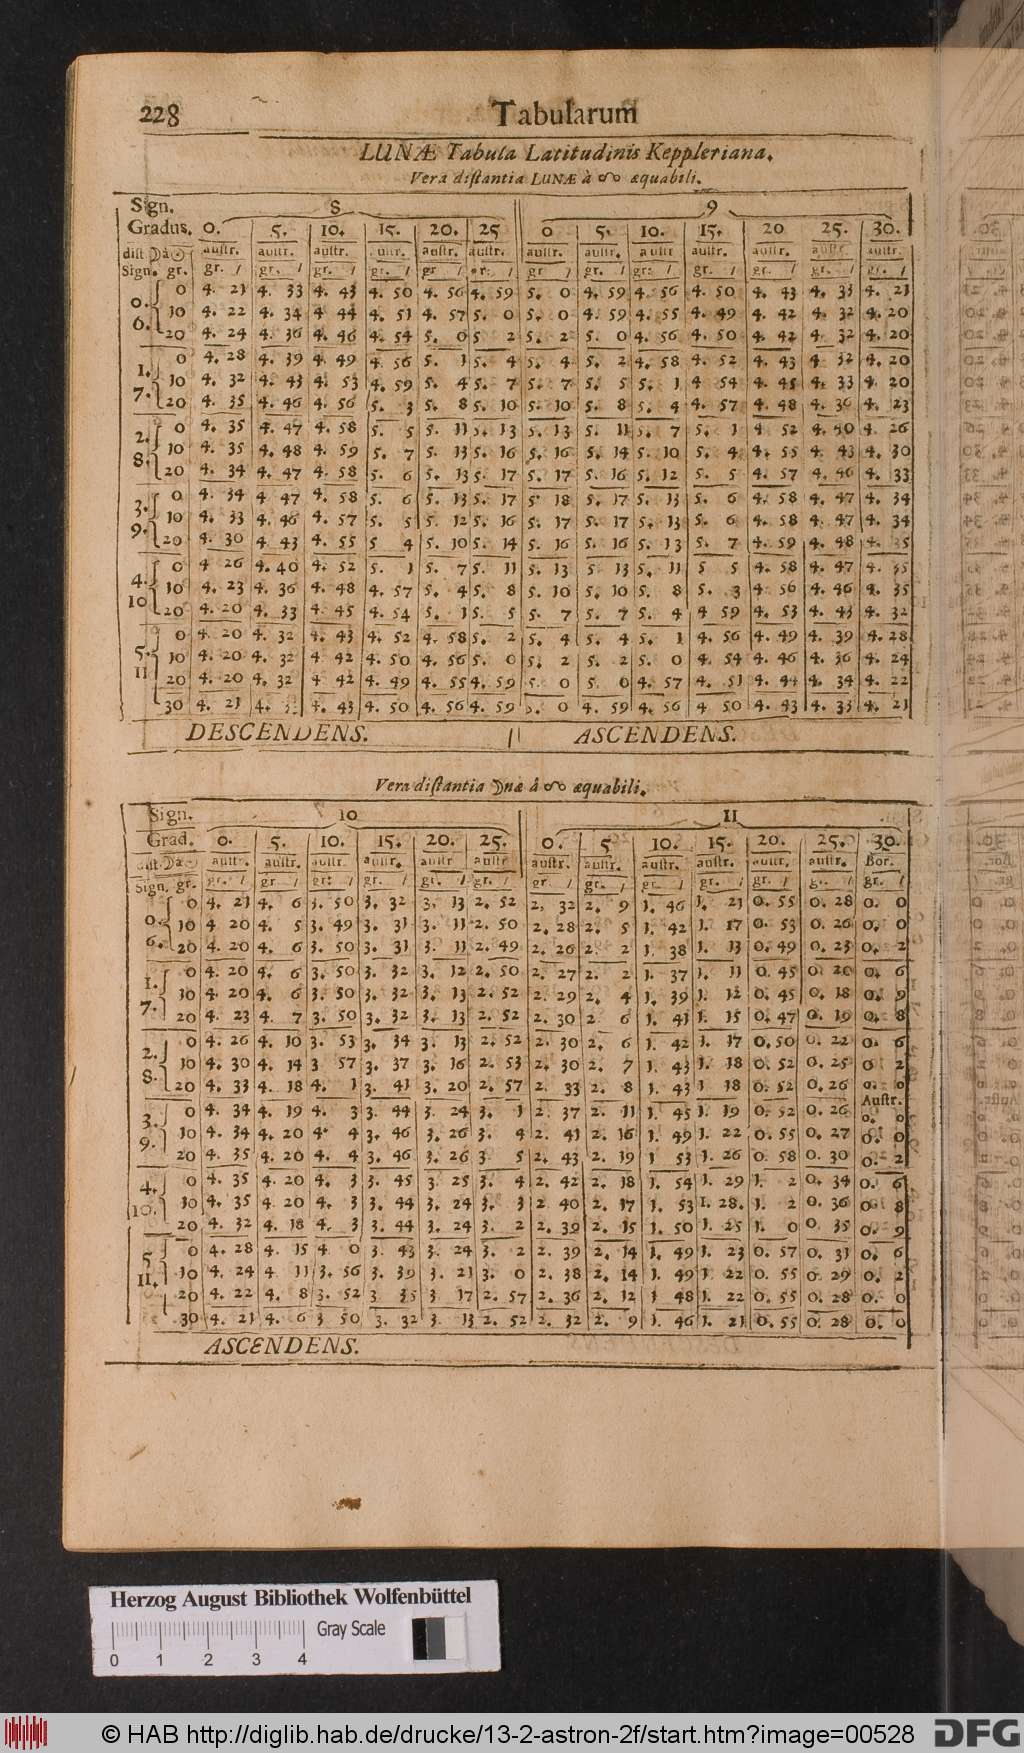 228 Tabularum
LUNÆ Tabula Latitudinis Keppleriana.
Vera distantia LUNÆ à ☊ æquabili.
Sign. 8 9
Gradus. 0. 5. 10. 15. 20. 25 0 5. 10. 15. 20 25. 30.
dist ☽ à ☉ austr. austr. austr. austr. austr. austr. austr. austr. austr austr. austr. austr austr.
Sign. gr. gr. / gr. / gr. / gr. / gr / gr. / gr / gr. / gr: / gr. / gr. / gr. / gr. /
0 4. 21 4. 33 4. 43 4. 50 4. 56 4. 59 5. 0 4. 59 4. 56 4. 50 4. 43 4. 33 4. 21
0. 10 4. 22 4. 34 4 44 4. 51 4. 57 5. 0 5. 0 4. 59 4. 55 4. 49 4. 42 4. 32 4. 20
6. 20 4. 24 4. 36 4. 46 4. 54 5. 0 5 2 5. 2 5. 0 4. 56 4. 50 4. 42 4. 32 4. 20
0 4. 28 4. 39 4. 49 4. 56 5. 1 5. 4 5. 4 5. 2 4. 58 4. 52 4. 43 4 32 4. 20
1. 10 4. 32 4. 43 4. 53 4. 59 5. 4 5. 7 5. 7 5 5 5. 1 4 54 4. 45 4. 33 4. 20
7. 20 4. 35 4. 46 4. 56 5. 3 5. 8 5. 10 5. 10 5. 8 5. 4 4. 57 4. 48 4. 36 4. 23
2. 0 4. 35 4. 47 4. 58 5. 5 5. 11 5. 13 5. 13 5. 11 5. 7 5. 1 4. 52 4. 40 4. 26
8. 10 4. 35 4. 48 4. 59 5. 7 5. 13 5. 16 5. 16 5. 14 5. 10 5. 4 4. 55 4. 43 4. 30
20 4. 34 4. 47 4. 58 5. 6 5. 13 5. 17 5. 17 5. 16 5. 12 5. 5 4. 57 4. 46 4. 33
3. 0 4. 34 4 47 4. 58 5. 6 5. 13 5. 17 5. 18 5. 17 5. 13 5. 6 4. 58 4. 47 4. 34
10 4. 33 4. 46 4. 57 5. 5 5. 12 5. 16 5. 17 5. 17 5. 13 5. 6 4. 58 4. 47 4. 34
9. 20 4. 30 4 43 4. 55 5 4 5. 10 5. 14 5. 16 5. 16 5. 13 5. 7 4. 59 4. 48 4. 35
4. 0 4 26 4. 40 4. 52 5. 1 5. 7 5. 11 5. 13 5 13 5. 11 5 5 4. 58 4. 47 4. 35
10 10 4. 23 4. 36 4. 48 4. 57 5. 4 5. 8 5. 10 5. 10 5. 8 5. 3 4. 56 4. 46 4. 35
20 4. 20 4. 33 4. 45 4. 54 5. 1 5. 5 5. 7 5. 7 5. 4 4 59 4. 53 4. 43 4. 32
0 4. 20 4. 32 4. 43 4. 52 4. 58 5. 2 5. 4 5. 4 5. 1 4. 56 4. 49 4. 39 4. 28
5. 10 4. 20 4. 32 4 42 4. 50 4. 56 5. 0 5. 2 5. 2 5. 0 4. 54 4. 46 4. 36 4. 24
11 20 4. 20 4. 32 4 42 4. 49 4. 55 4. 59 5. 0 5. 0 4. 57 4. 51 4. 44 4. 34 4. 22
30 4. 21 4. 4. 43 4. 50 4. 56 4. 59 5. 0 4. 59 4. 56 4 50 4. 43 4. 33 4. 21
DESCENDENS. ASCENDENS.
Vera distantia ☽næ à ☊ æquabili.
Sign. 10 11
Grad. 0. 5. 10. 15. 20. 25. 0. 5 10. 15. 20. 25. 30.
dist ☽ à ☉ austr. austr. austr. austr. austr austr austr. austr. austr. austr. austr. austr. Bor.
Sign. gr. gr. / gr / gr: / gr. / gr. / gr. / gr. / gr. / gr / gr. / gr. / g. / gr. /
0 4. 21 4. 6 3. 50 3. 32 3. 13 2. 52 2. 32 2. 9 1. 46 1. 21 0. 55 0. 28 0. 0
0. 10 4 20 4. 5 3. 49 3. 31 3. 11 2. 50 2. 28 2. 5 1. 42 1. 17 0. 53 0. 26 0. 0
6. 20 4. 20 4. 6 3. 50 3. 31 3. 11 2. 49 2. 26 2. 2 1. 38 1. 13 0. 49 0. 23 0. 2
1. 0 4. 20 4. 6 3. 50 3. 32 3. 12 2. 50 2. 27 2. 2 1. 37 1. 11 0. 45 0. 20 0. 6
7. 10 4. 20 4. 6 3. 50 3. 32 3. 13 2. 52 2. 29 2. 4 1. 39 1. 12 0. 45 0. 18 0. 9
20 4. 23 4. 7 3. 50 3. 32 3. 13 2. 52 2. 30 2 6 1. 41 1. 15 0. 47 0. 19 0. 8
2. 0 4. 26 4. 10 3. 53 3. 34 3. 13 2. 52 2. 30 2. 6 1. 42 1. 17 0. 50 0. 22 0. 6
8. 10 4. 30 4. 14 3 57 3. 37 3. 16 2. 53 2. 30 2. 7 1. 43 1. 18 0. 52 0. 25 0 2
20 4. 33 4. 18 4. 1 3. 41 3. 20 2. 57 2. 33 2. 8 1. 43 1 18 0. 52 0. 26 0. 0
Austr.
3. 0 4. 34 4. 19 4. 3 3. 44 3. 24 3. 1 2. 37 2. 11 1. 45 1. 19 0. 52 0. 26 0. 0
9. 10 4. 34 4. 20 4. 4 3. 46 3. 26 3. 4 2. 41 2. 16 1. 49 1. 22 0. 55 0. 27 0. 0
20 4. 35 4. 20 4. 4 3. 46 3. 26 3 5 2. 43 2. 19 1 53 1. 26 0. 58 0. 30 0. 2
4. 0 4. 35 4. 20 4. 3 3. 45 3. 25 3. 4 2. 42 2. 18 1. 54 1. 29 1. 2 0. 34 0. 6
10. 10 4. 35 4. 20 4. 3 3. 44 3. 24 3. 3 2. 40 2. 17 1. 53 1. 28. 1. 2 0. 36 0. 8
20 4. 32 4. 18 4. 3 3. 44 3. 24 3. 2 2. 39 2. 15 1. 50 1. 25 1. 0 0. 35 0. 9
5 0 4. 28 4. 15 4 0 3. 43 3. 24 3. 2 2. 39 2. 14 1. 49 1. 23 0. 57 0. 31 0. 6
11. 10 4. 24 4 11 3. 56 3. 39 3. 21 3. 0 2. 38 2. 14 1. 49 1. 22 0. 55 0. 29 0. 2
20 4. 22 4. 8 3. 52 3 35 3 17 2. 57 2. 36 2. 12 1 48 1. 22 0. 55 0. 28 0. 0
30 4. 21 4. 6 3 50 3. 32 3. 13 2. 52 2. 32 2. 9 1. 46 1. 21 0. 55 0. 28 0. 0
ASCENDENS.
Herzog August Bibliothek Wolfenbüttel
Gray Scale
0 1 2 3 4
© HAB http://diglib.hab.de/drucke/13-2-astron-2f/start.htm?image=00528 DFG